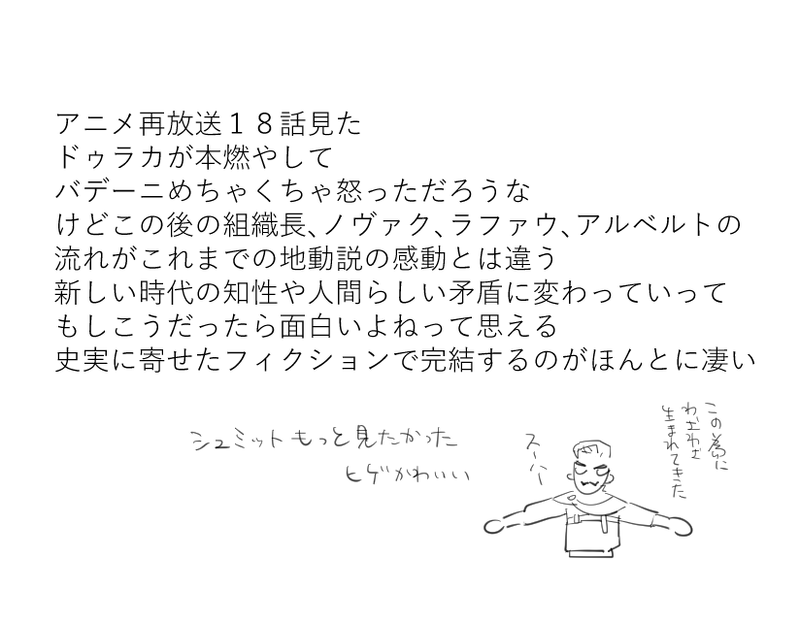 アニメ再放送１８話見た
ドゥラカが本燃やして
バデーニめちゃくちゃ怒っただろうな
けどこの後の組織長、ノヴァク、ラファウ、アルベルトの
流れがこれまでの地動説の感動とは違う
新しい時代の知性や人間らしい矛盾に変わっていって
もしこうだったら面白いよねって思える
史実に寄せたフィクションで完結するのがほんとに凄い
シュミットもっと見たかった
ヒゲかわいい
スーハー
この為に
わざわざ
生まれてきた